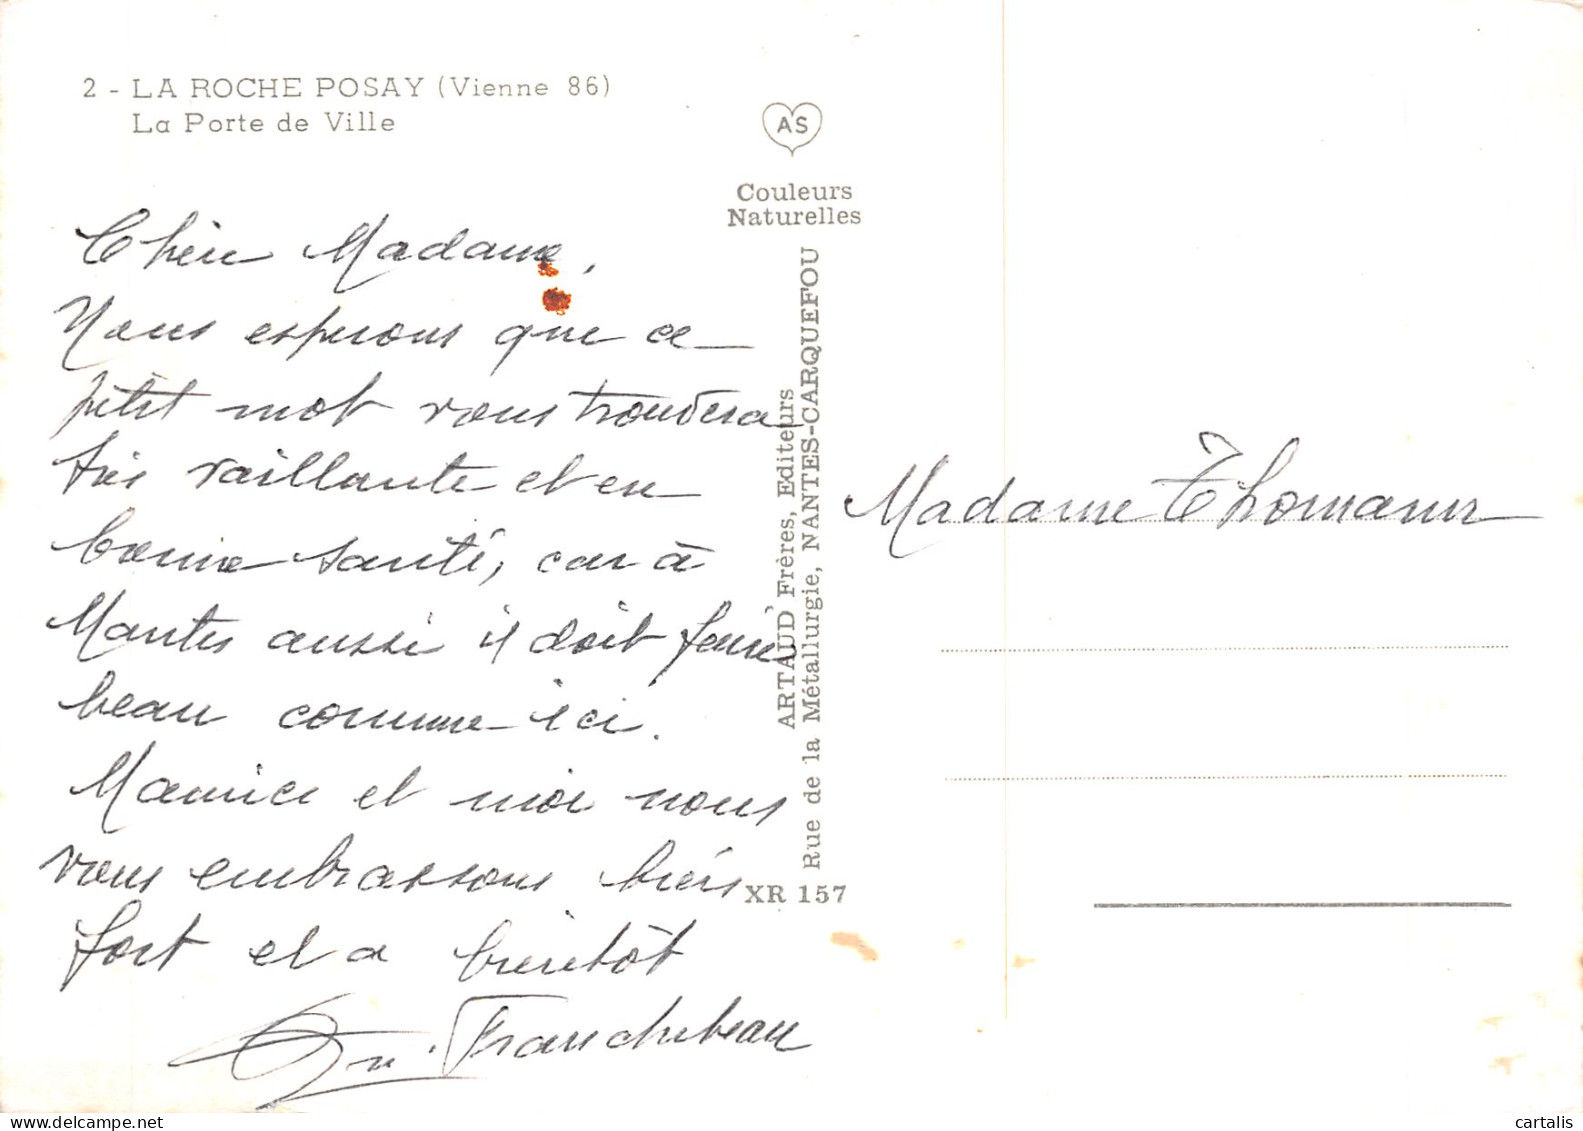 2 - LA ROCHE POSAY (Vienne 86)
La Porte de Ville
Chère Madame,
Nous esperons que ce
petit mot vous trouvera
très vaillante et en
bonne santé, car à
Mantes aussi il doit faire
beau comme ici.
Maurice et moi nous
vous embrassons bien
fort et a bientôt
Franchebeau
AS
Couleurs
Naturelles
ARTAUD Frères, Editeurs
Rue de la Métallurgie, NANTES-CARQUEFOU
XR 157
Madame Thomann
cartalis